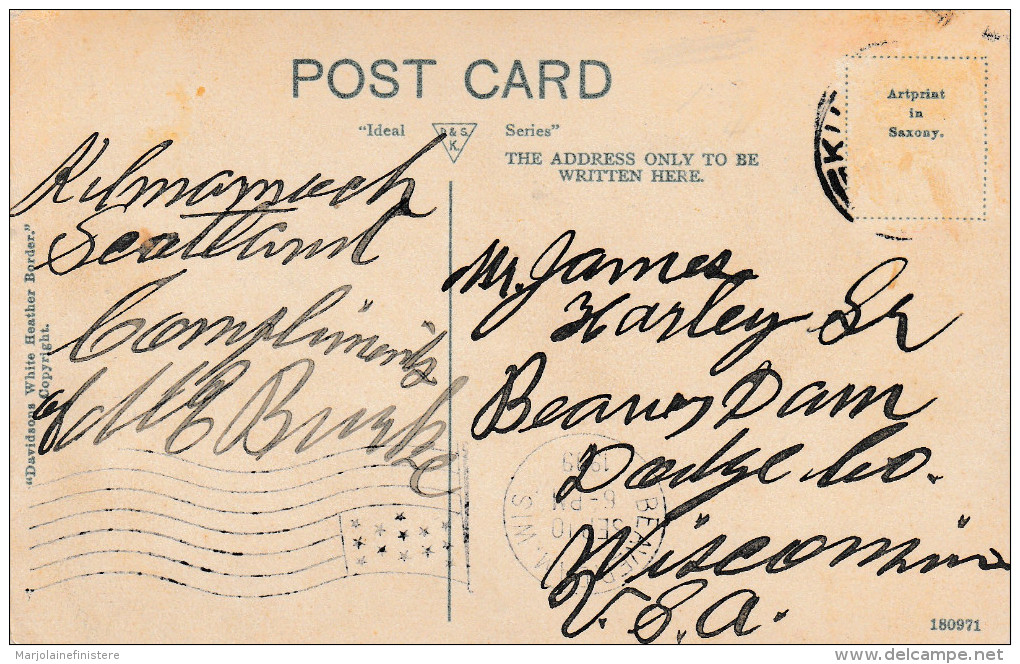 POST CARD
"Ideal D & S. K. Series"
THE ADDRESS ONLY TO BE
WRITTEN HERE.
Artprint
in
Saxony.
Kilmarnock
Scotland
Compliments
of M E Burke
"Davidsons White Heather Border."
Copyright.
Mr. James
Harley Sr
Beaver Dam
Dodge Co.
Wisconsin
U.S.A.
BEAVER
SEP 10
6-PM
1909
WIS
180971
Marjolainefinistere
delcampe.net